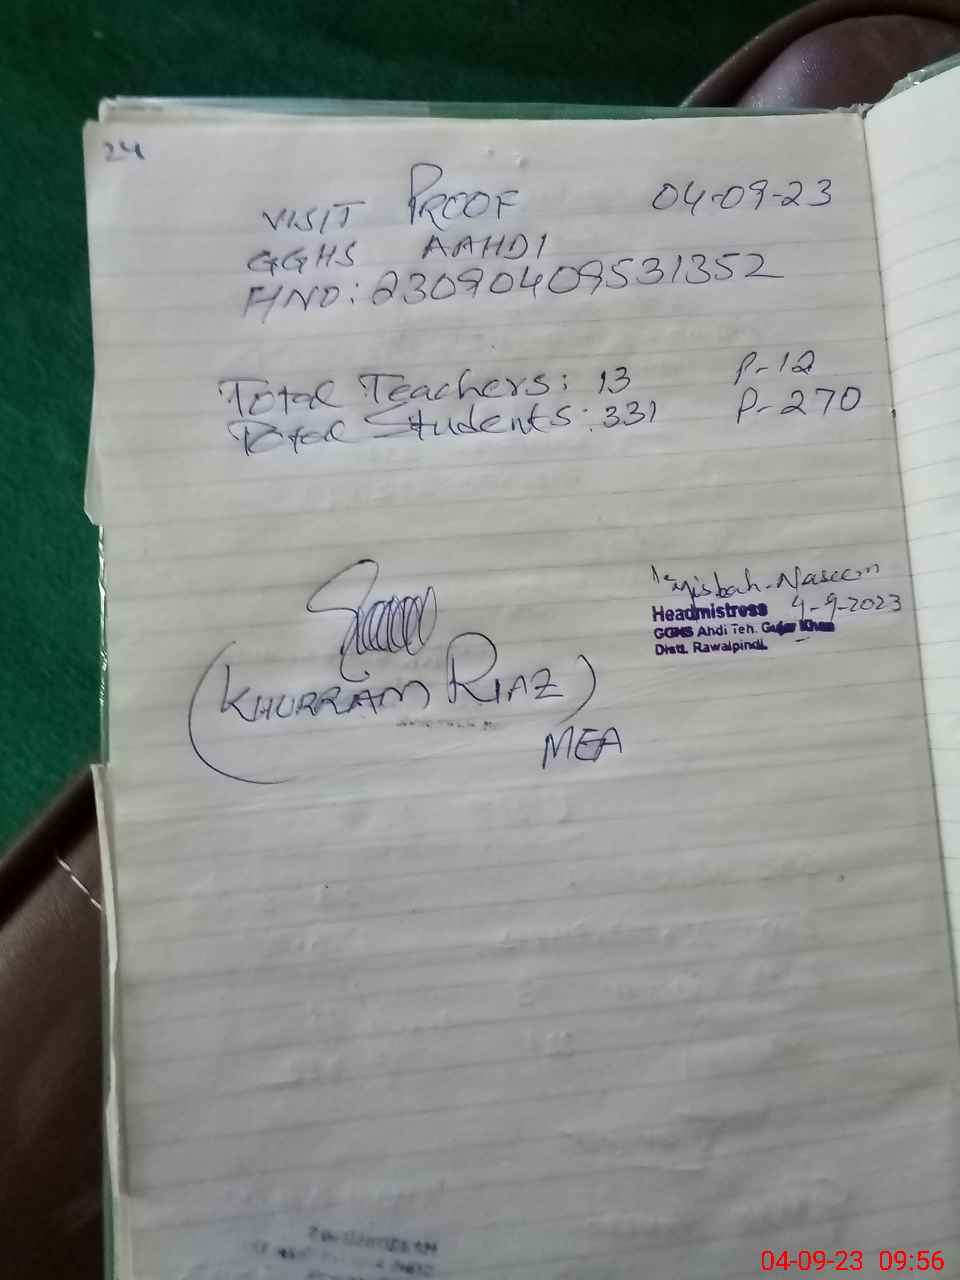 24
VISIT PROOF 04-09-23
GGHS AAHDI
F/NO: 23090409531352
Total Teachers: 13 P-12
Total Students: 331 P-270
Misbah Naseem
Headmistress 4-9-2023
GGHS Ahdi Teh. Gujar Khan
Distt. Rawalpindi.
(KHURRAM RIAZ)
MEA
04-09-23 09:56